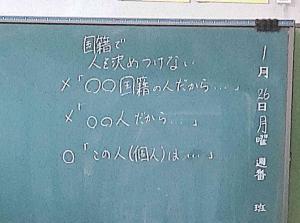 国籍で
人を決めつけない
×「〇〇国籍の人だから…」
×「〇の人だから…」
〇「この人(個人)は…」
1月26日月曜 週番 班